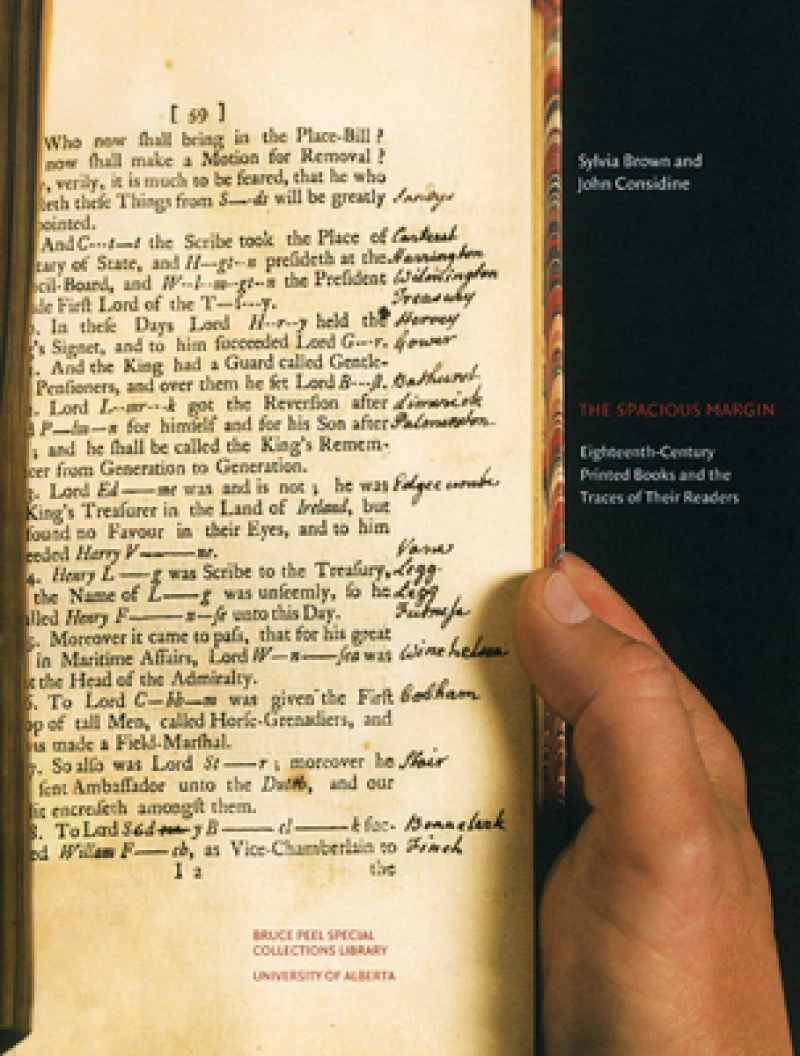 [ 59 ]
Who now ſhall bring in the Place-Bill ?
now ſhall make a Motion for Removal ?
, verily, it is much to be feared, that he who
leth theſe Things from S--ds will be greatly Sandys
pointed.
And C---t--t the Scribe took the Place of Carteret
tary of State, and H--gt--n preſideth at the Harrington
cil-Board, and W--l--m--gt--n the Preſident Wilmington
de Firſt Lord of the T--ſ---y. Treasury
. In theſe Days Lord H--r--y held the Hervey
's Signet, and to him ſucceeded Lord G---r. Gower
. And the King had a Guard called Gentle-
Penſioners, and over them he ſet Lord B---ſt. Bathurst
. Lord L--mr---k got the Reverſion after Limerick
P--lm--n for himſelf and for his Son after Palmerston
; and he ſhall be called the King's Remem-
cer from Generation to Generation.
3. Lord Ed——me was and is not ; he was Edgecumbe
King's Treaſurer in the Land of Ireland, but
found no Favour in their Eyes, and to him
eeded Harry V———ne. Vane
4. Henry L——g was Scribe to the Treaſury, Legg
the Name of L——g was unſeemly, ſo he Legg
lled Henry F———n--ſe unto this Day. Furneſe
5. Moreover it came to paſs, that for his great
in Maritime Affairs, Lord W--n——ſea was Winchelsea
t the Head of the Admiralty.
6. To Lord C--bh--m was given the Firſt Cobham
op of tall Men, called Horſe-Grenadiers, and
was made a Field-Marſhal.
7. So alſo was Lord St——r ; moreover he Stair
ſent Ambaſſador unto the Dutch, and our
dit encreaſeth amongſt them.
8. To Lord y B———cl———k ſuc-
ed William F——ch, as Vice-Chamberlain to Finch
I 2 the
BRUCE PEEL SPECIAL
COLLECTIONS LIBRARY
UNIVERSITY OF ALBERTA
Sylvia Brown and
John Considine
THE SPACIOUS MARGIN
Eighteenth-Century
Printed Books and the
Traces of Their Readers